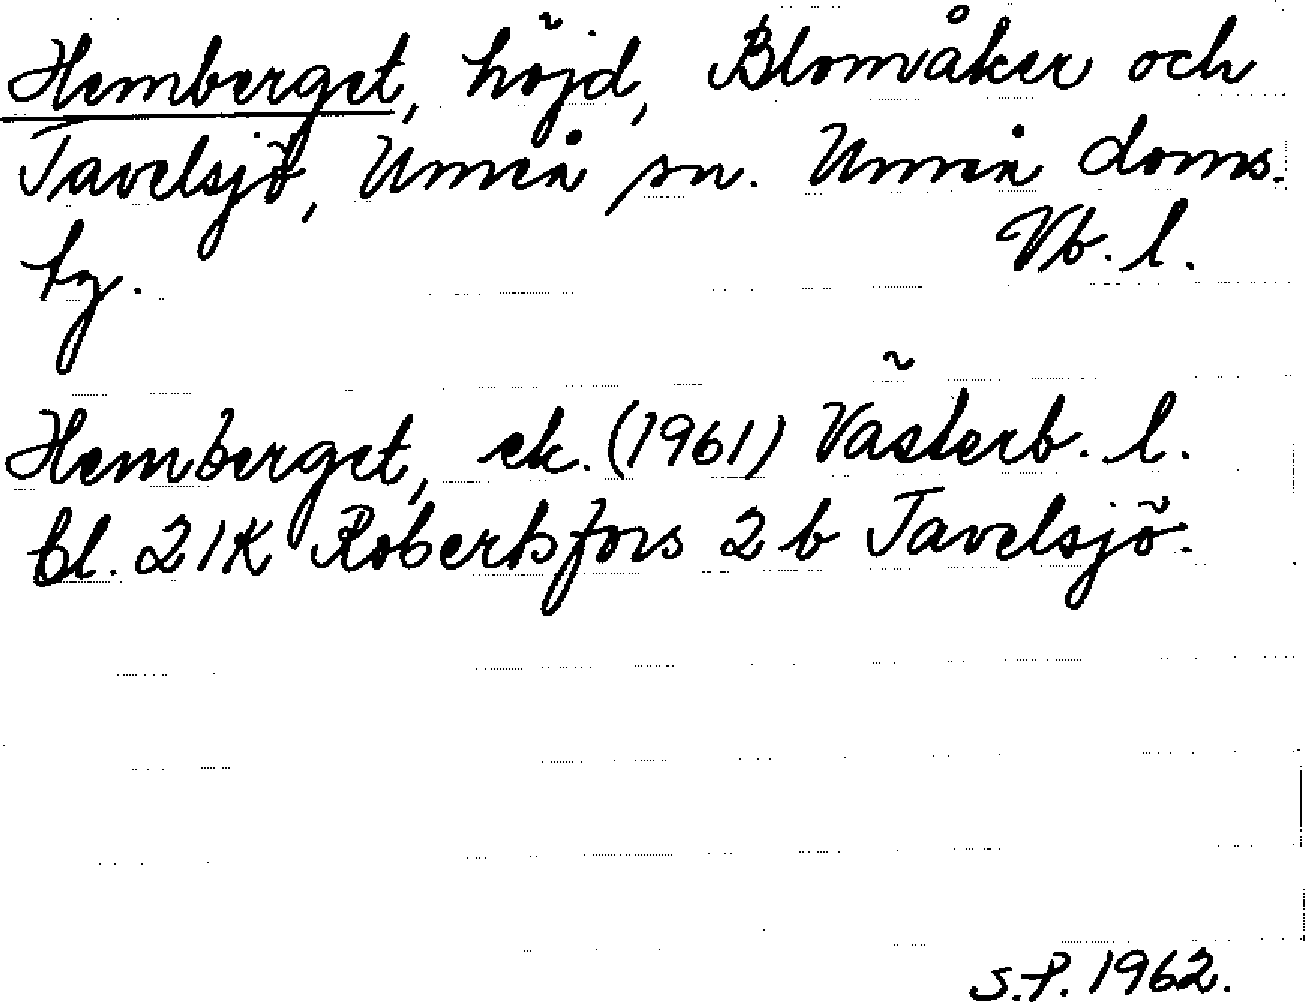 Hemberget, höjd, Blomåker och
Tavelsjö, Umeå sn. Umeå doms.
hg. Vb. l.
Hemberget, ek. (1961) Västerb. l.
bl. 21K Robertsfors 2 b Tavelsjö.
S.P. 1962.